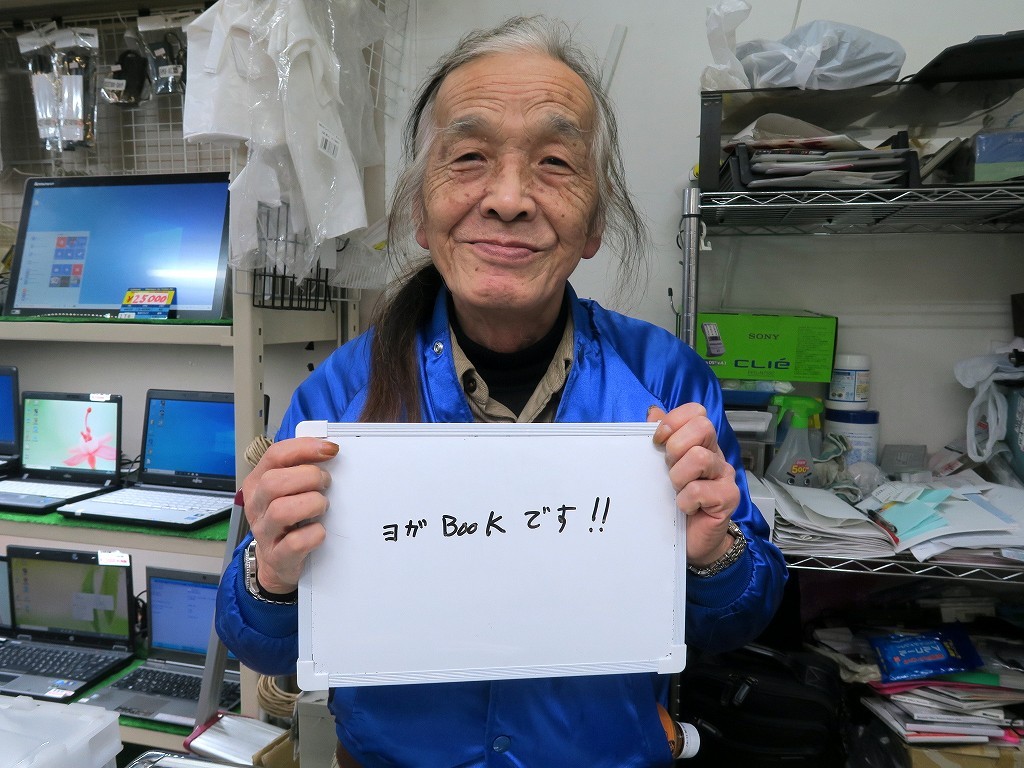 ヨガ BooK です!!
¥25000
SONY
CLIÉ